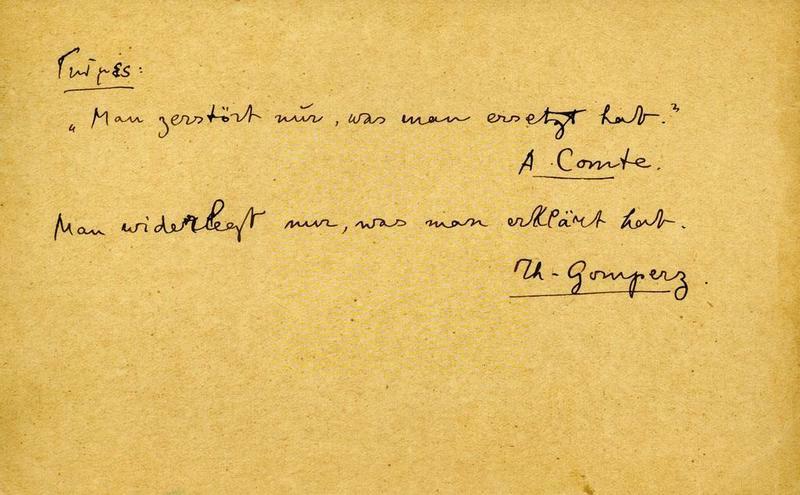 „Man zerstört nur, was man ersetzt hat."
A. Comte.
Man widerlegt nur, was man erklärt hat.
Th. Gomperz.